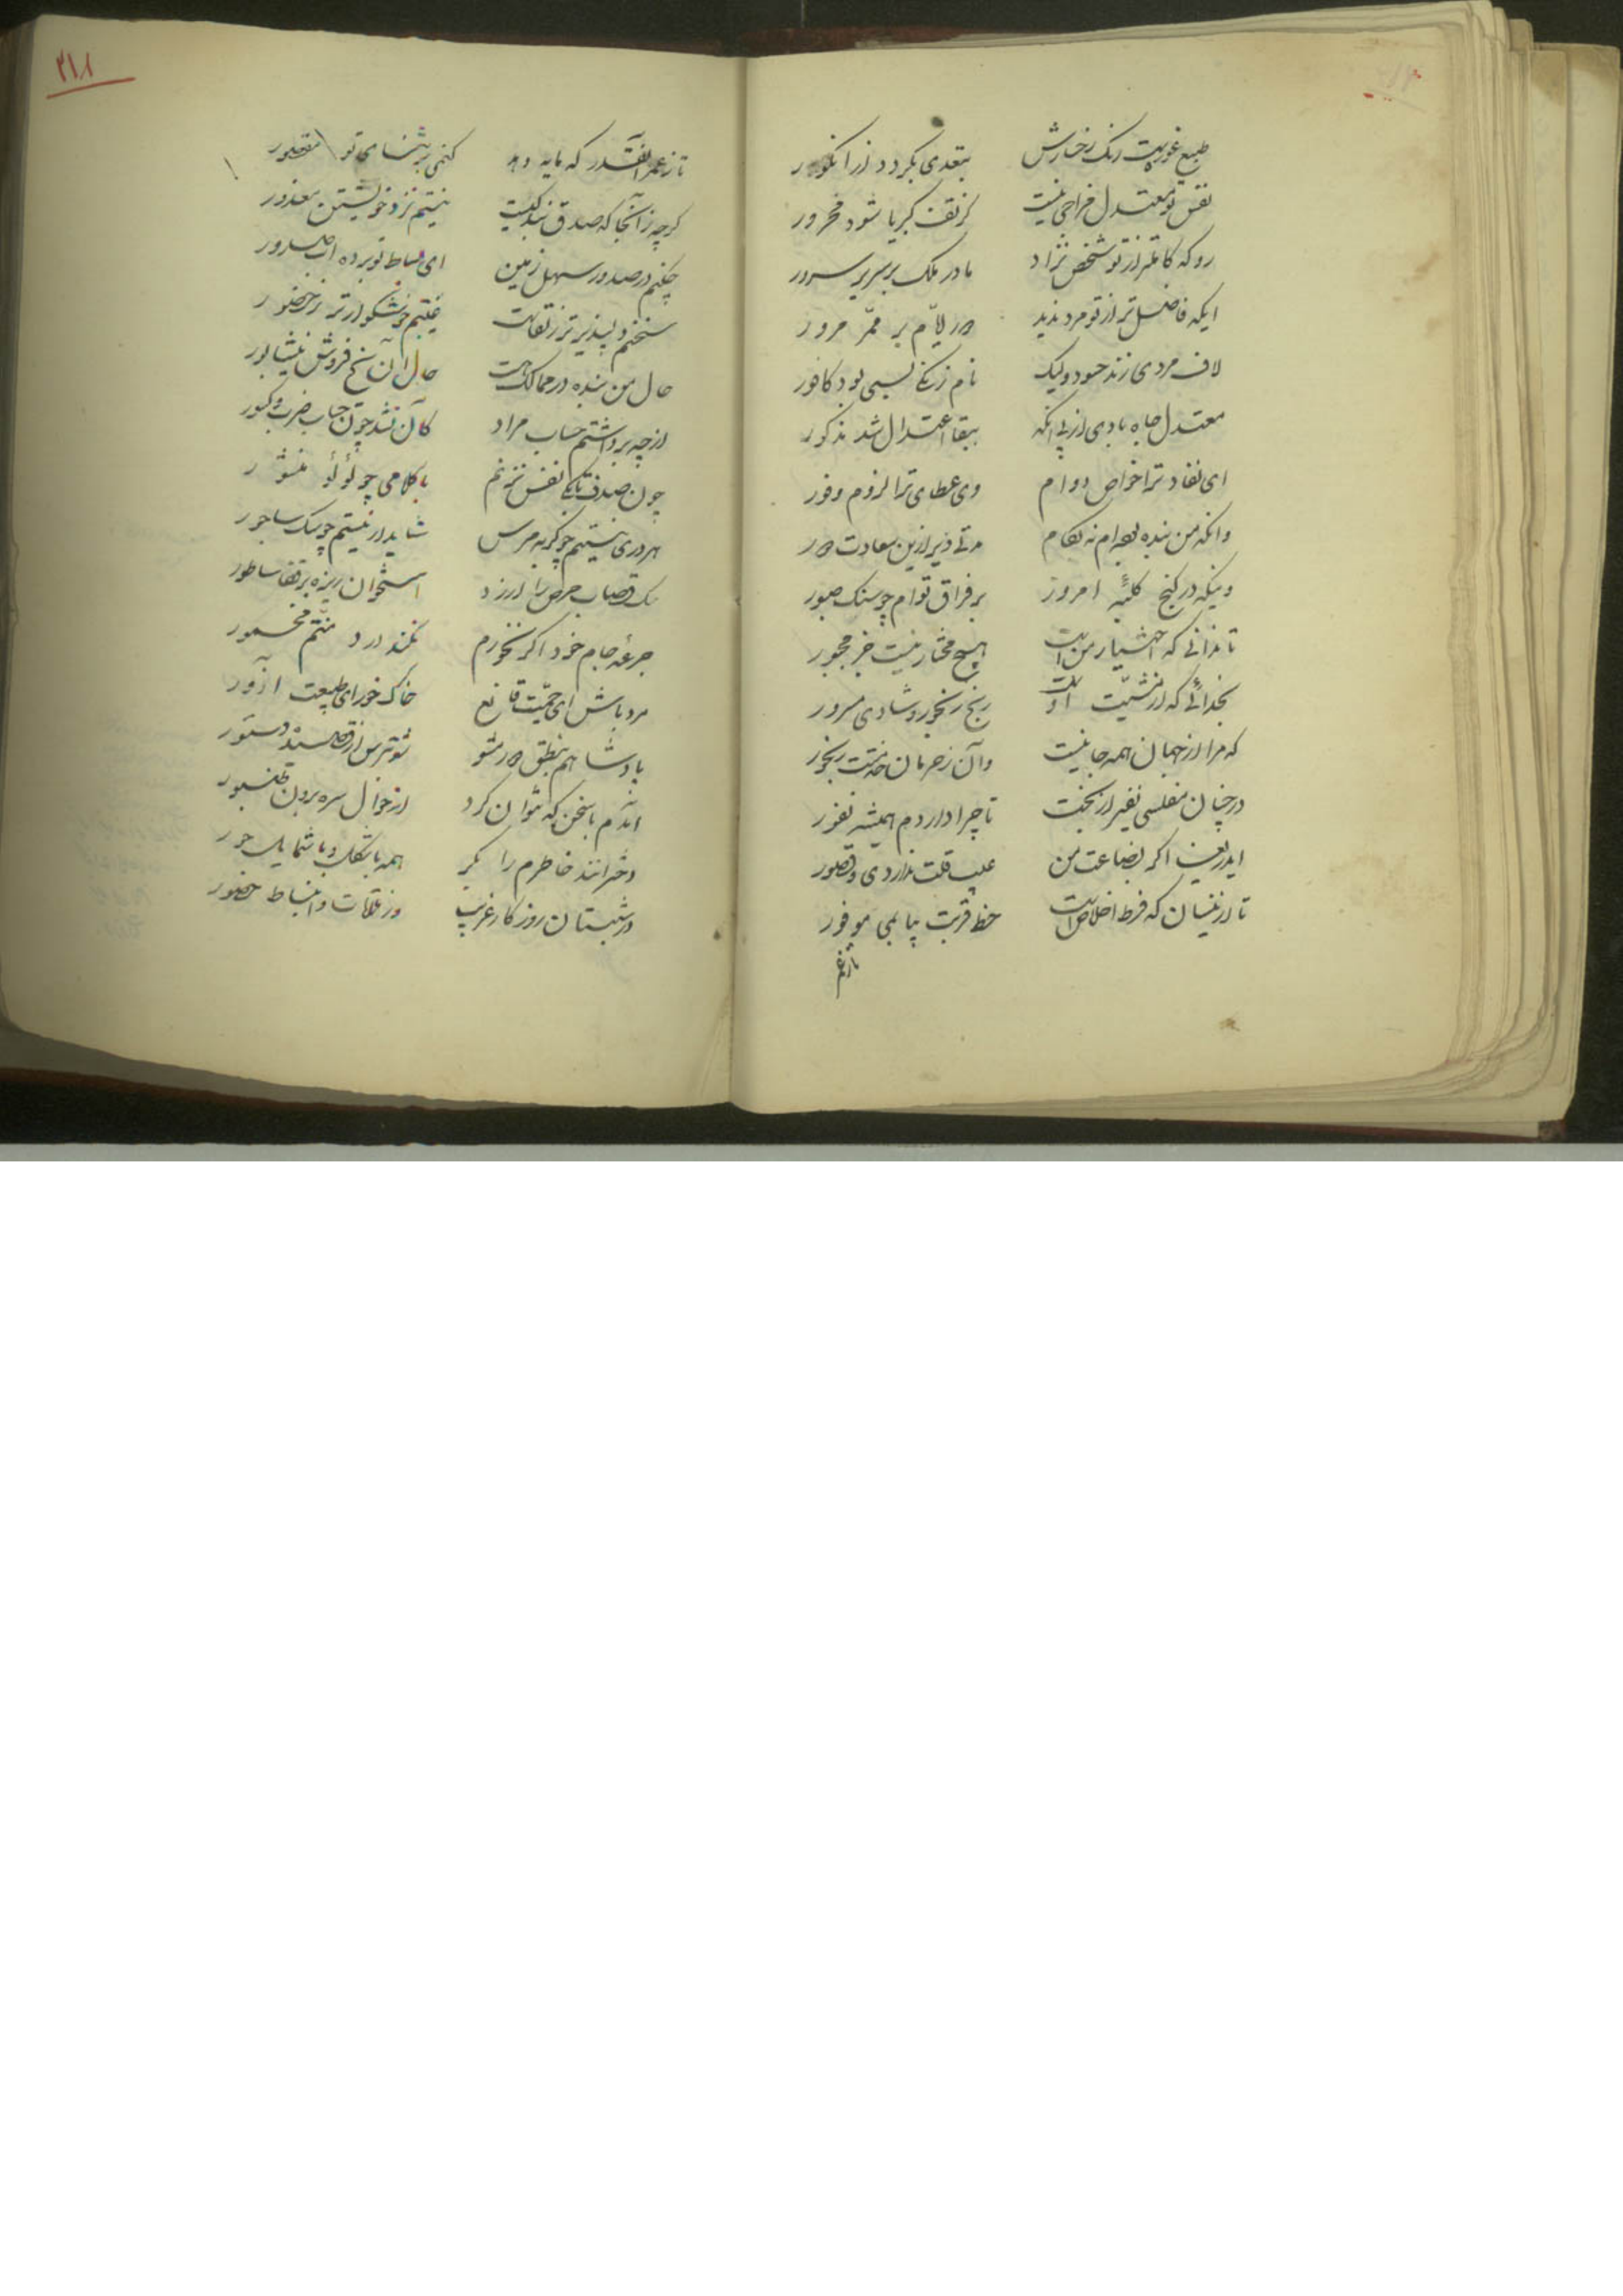 طبع غوریت رنک رخسارش بتعدی نکردد از انکور
نفس تو معتدل مزاجی نیست کز تف کبریا شود محرور
رو که کاملتر از تو شخص نزاد مادر ملک بر سریر سرور
ایکه فاضل تر از تو مرد ندید در لیّام بر ممّر مرور
لاف مردی زند حسود ولیک نام زنکی بسی بود کافور
معتدل جاه بادی از پی انکه ببقا اعتدال شد مذکور
ای نفاد ترا خواص دوام وی عطای ترا لزوم وفور
وانکه من بنده بوده‌ام نه بکام مدتی دیر ازین سعادت دور
وینکه در کنج کلبهٔ امروز بر فراق توام چو سنک صبور
تا ندانی که اختیار منست هیچ مختار نیست جز مجبور
بخدائی که از مشیّت اوست رنج رنجور و شادی مسرور
که مرا از جهان همه جانیست وآن ز حرمان خدمتت رنجور
در چنان مفلسی نفیر از بخت تا چرا دارد م همیشه نفور
ایدریغا اکر بضاعت من عیب قلت نداردی و قصور
تا از نیسان که فرط اخلاص است حظ قربت بیابمی موفور
تا زعمر
۳۱۸
تا ز عمر آنقدر که مایه دهد کنمی بر ثنای تو مقصور
کرچه ز آنجا که صدق بندکیست نیستم نزد خویشتن معذور
چکنم در صدور سهل زمین ای بساط تو برده آب صدور
سخنم دلپذیر تر ز لقاست غیبتم خوشکوارتر ز حضور
حال من بنده در ممالک هست حال آن یخ فروش نیشابور
از چه برداشتم حساب مراد کان نشد چون حساب ضرب و کسور
چون صدف تا یکی نفس نزنم با کلامی چو لؤلؤ منثور
هر دری نیستم چو کربه مرس شاید ار نیستم چو سک ساجور
سک قصاب حرص را ارزد استخوان ریزه بر قفا ساطور
جرعه جام خود اکر نخورم نکند درد منتم مخمور
مرد باش ای حمیّت قانع خاک خور ای طبیعت آزور
پادشاهم بنطق دور مشو شو بترس از قصیده دستور
آمدم با سخن که نتوان کرد از جوال سره برون طنبور
دخترانند خاطرم را بکر همه با شکل و با شمایل حور
در شبستان روزکار غریب در ملاقات و انبساط حضور